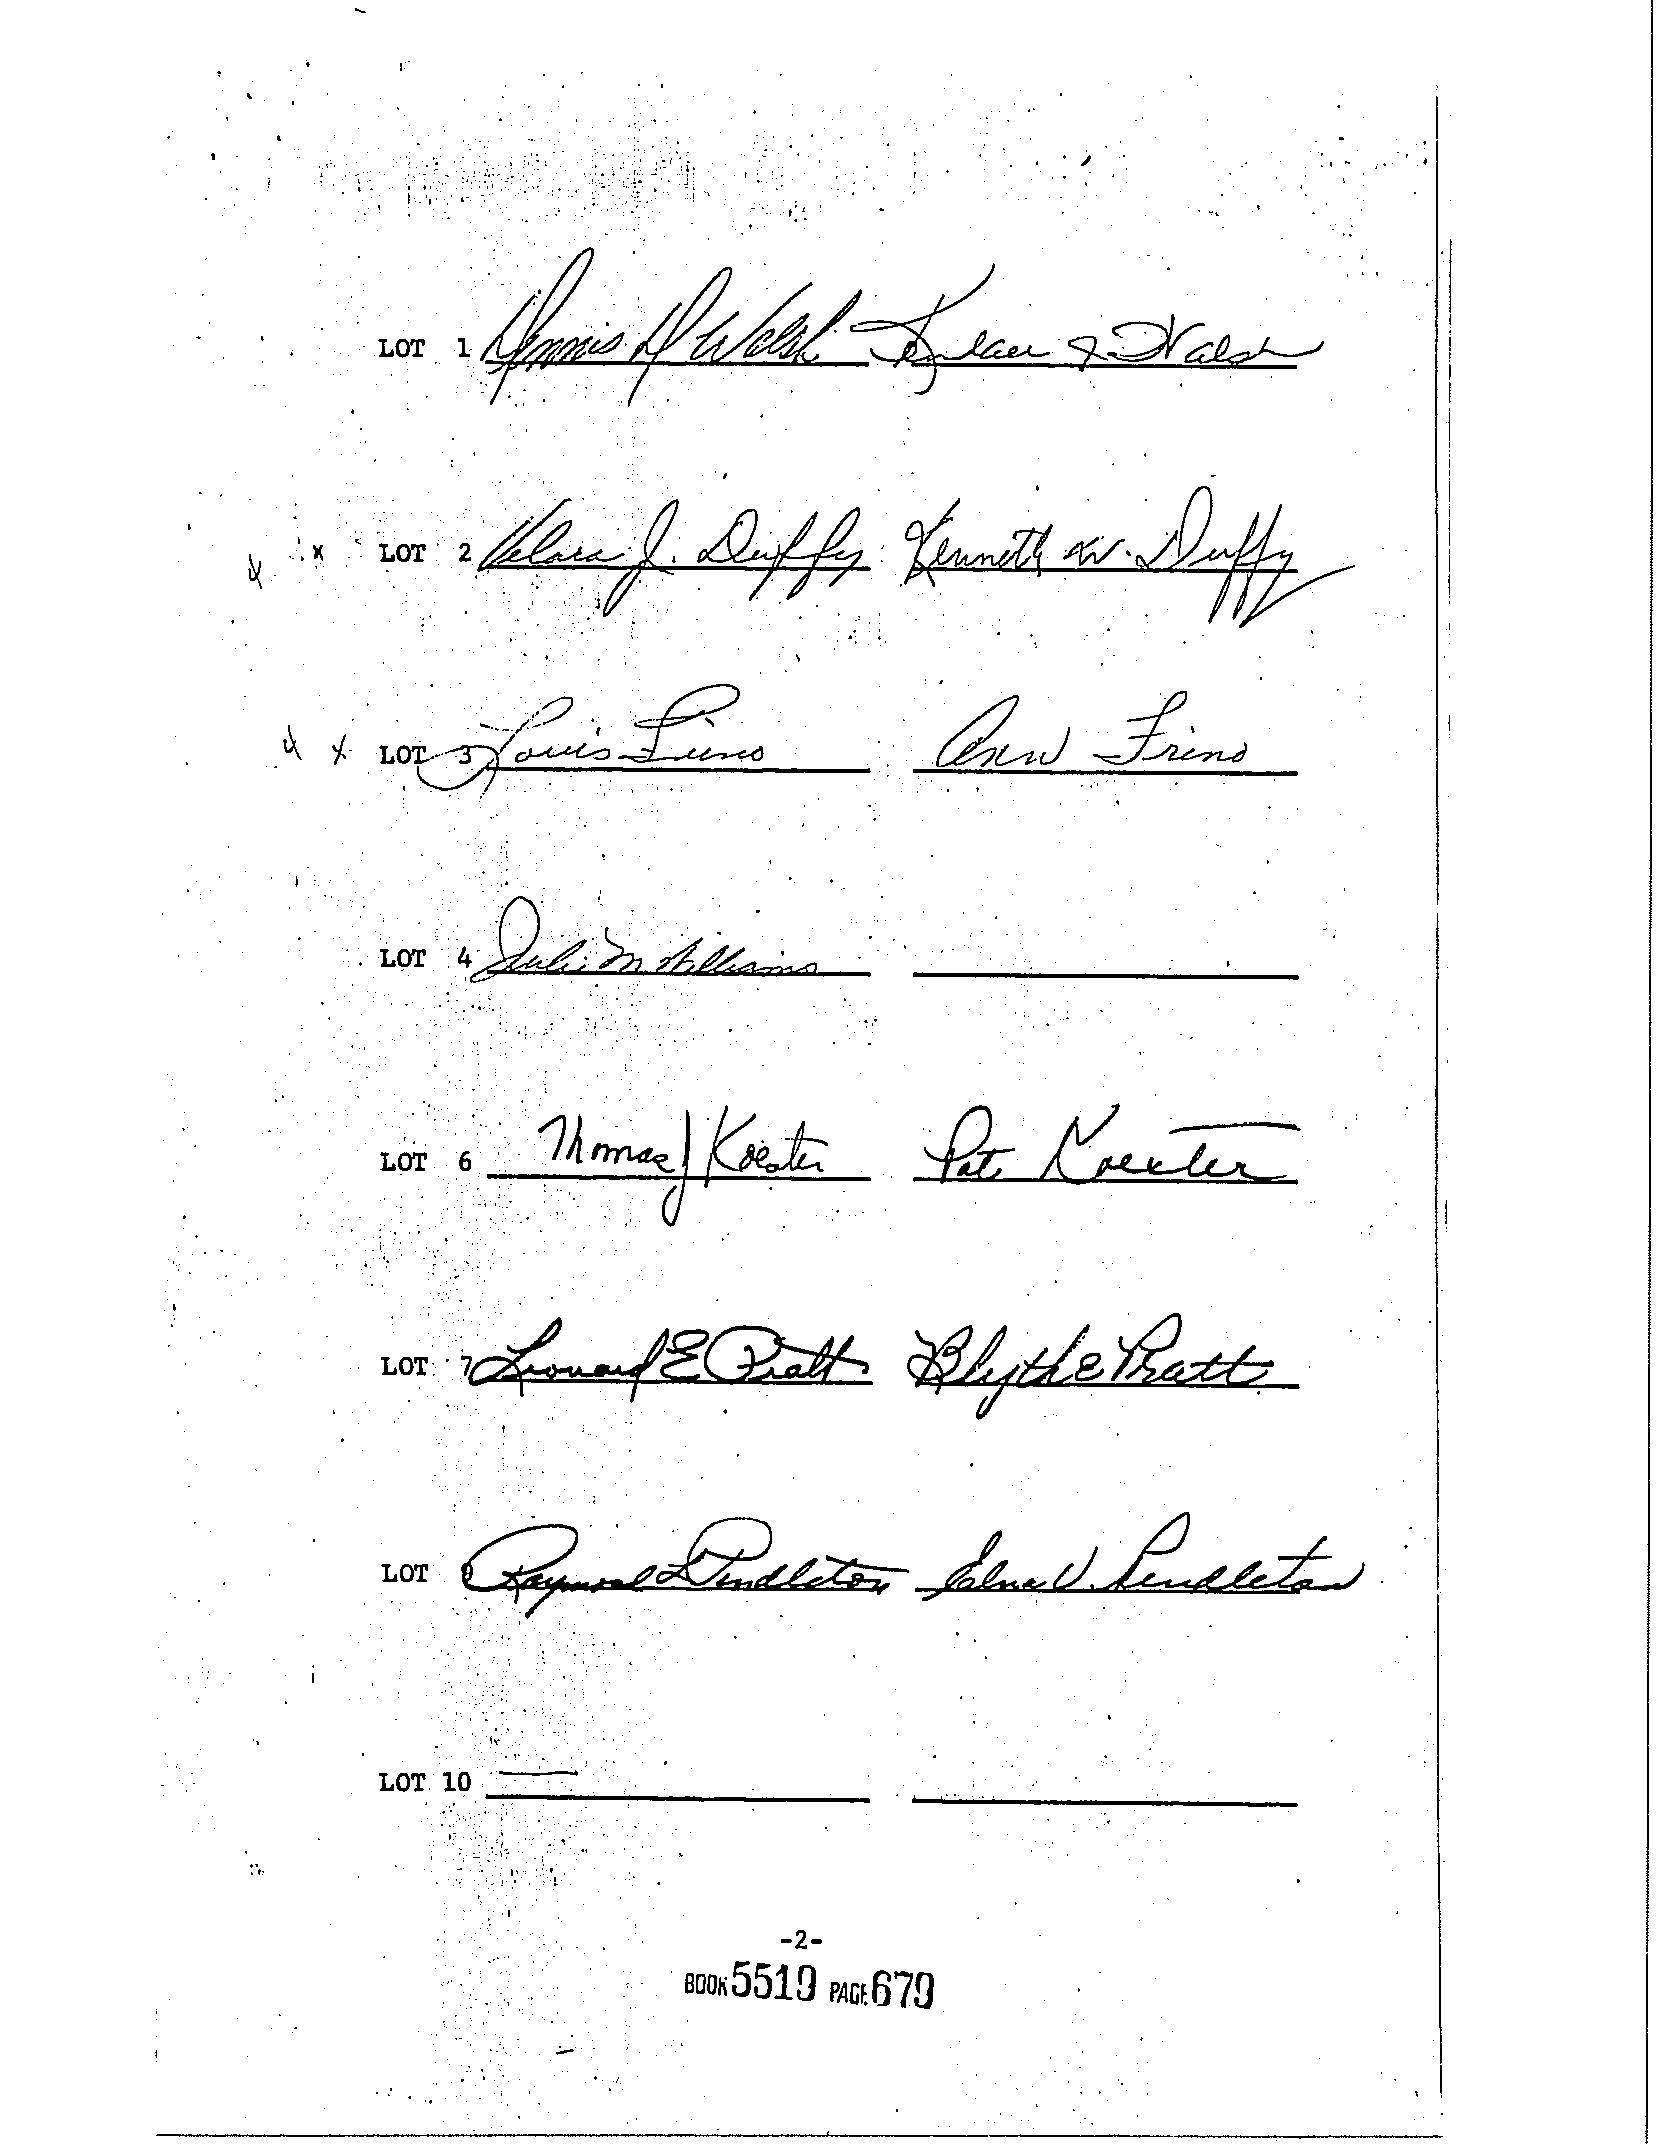 LOT 1 Dennis D Walsh J. Walsh
x LOT 2 J. Duffy Kenneth W. Duffy
x LOT 3 Louis Frino Ann Frino
LOT 4 Julie M Williams
LOT 6 Thomas J Koester Pat Koester
LOT 7 Leonard E Pratt Blythe Pratt
LOT 9 Raymond L Pendleton Edna V. Pendleton
LOT 10
-2-
BOOK 5519 PAGE 679